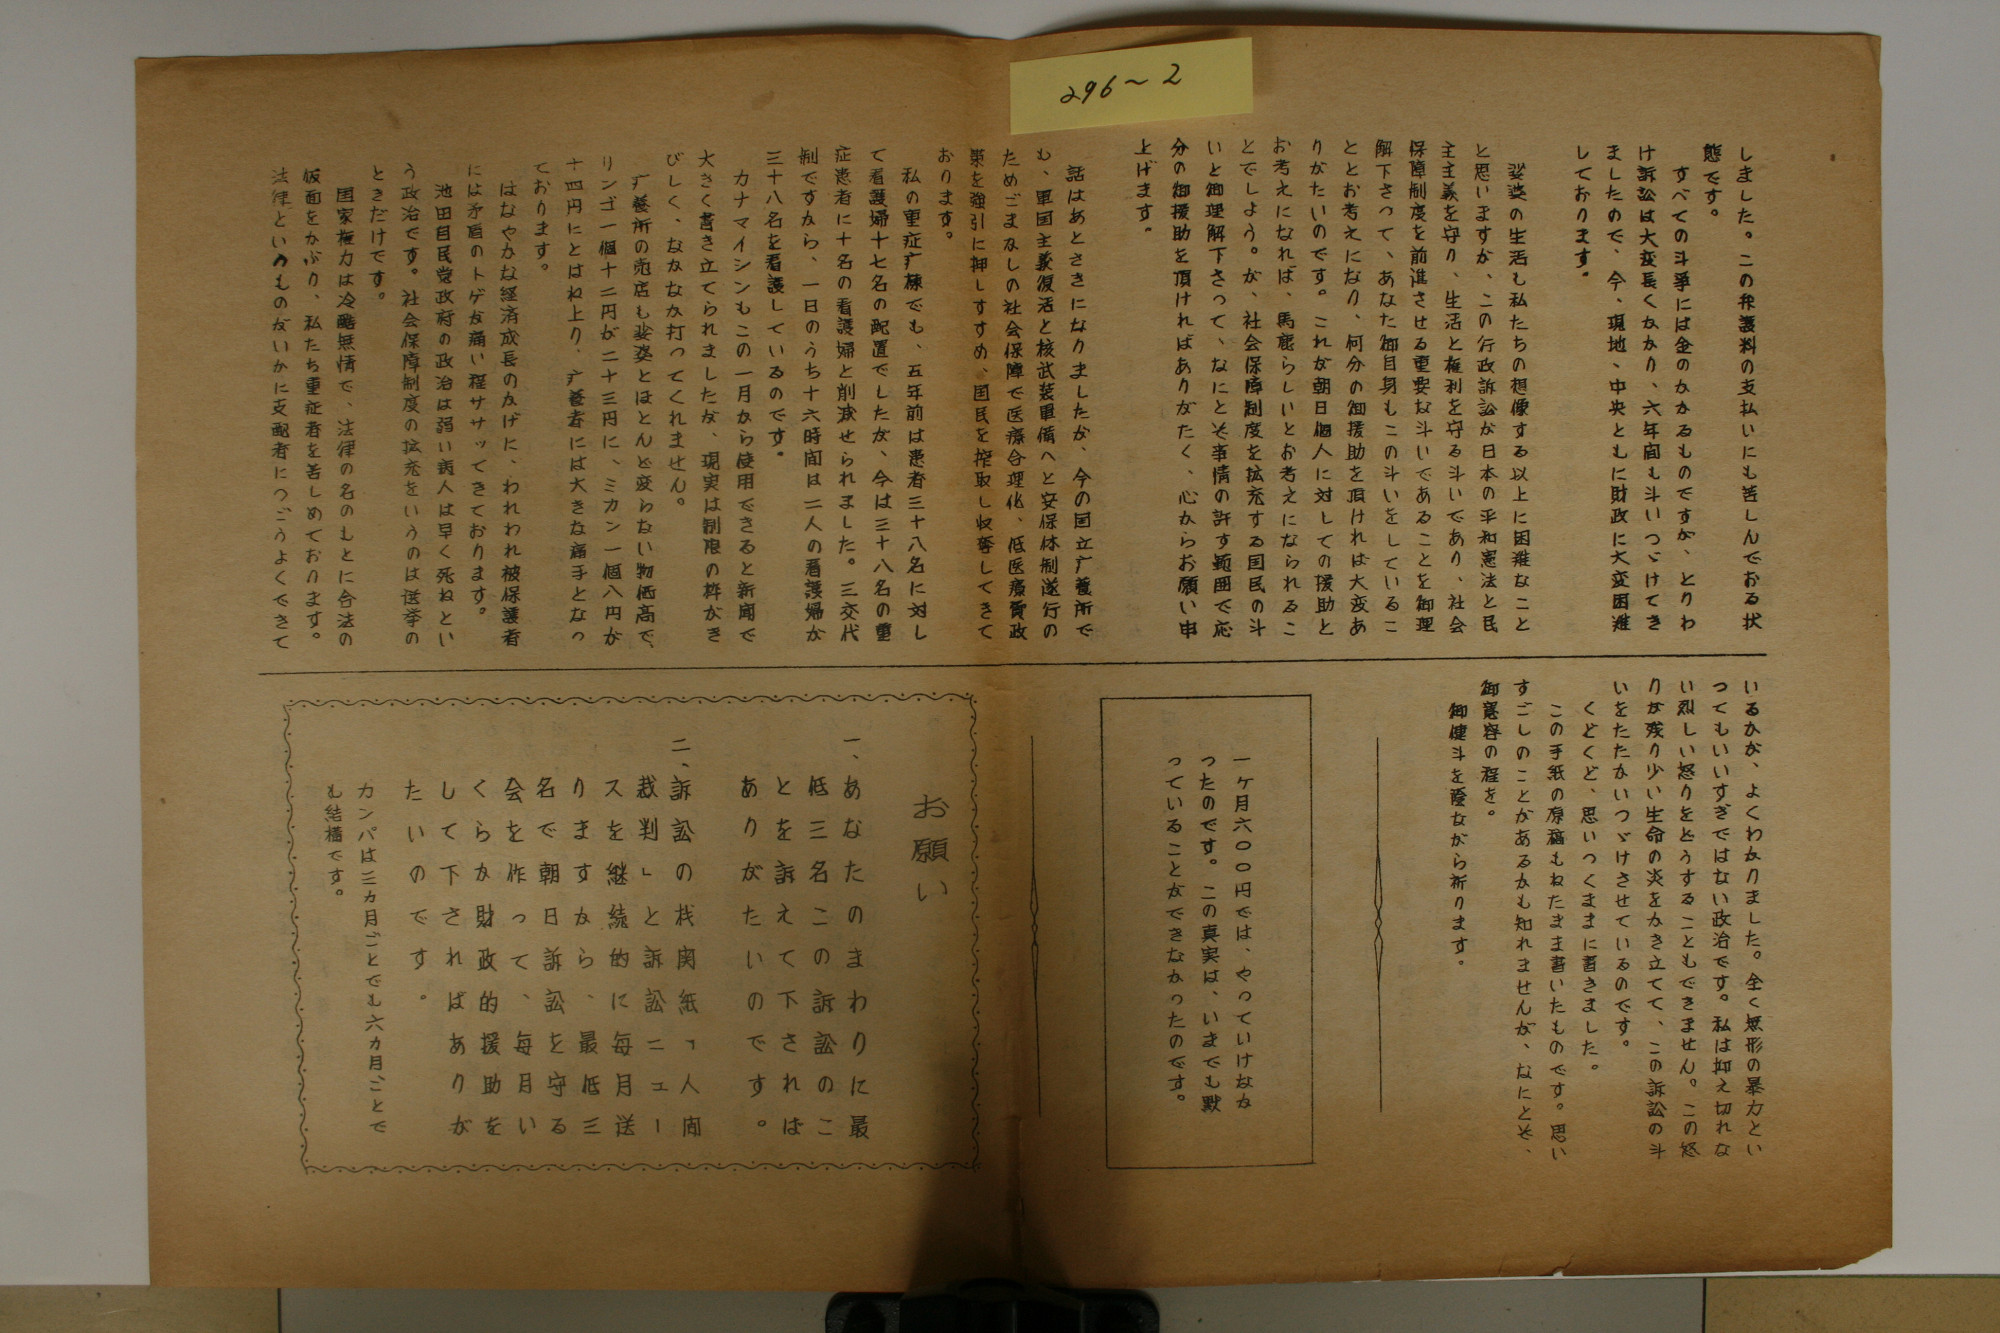 296~2
しました。この弁護料の支払いにも苦しんでおる状
態です。
すべての斗爭には金のかかるものですが、とりわ
け訴訟は大変長くかかり、六年間も斗いつゞけてき
ましたので、今、現地、中央ともに財政に大変困難
しております。
娑婆の生活も私たちの想像する以上に困難なこと
と思いますが、この行政訴訟が日本の平和憲法と民
主主義を守り、生活と権利を守る斗いであり、社会
保障制度を前進させる重要な斗いであることを御理
解下さって、あなた御自身もこの斗いをしているこ
ととお考えになり、何分の御援助を頂ければ大変あ
りがたいのです。これが朝日個人に対しての援助と
お考えになれば、馬鹿らしいとお考えになられるこ
とでしよう。が、社会保障制度を拡充する国民の斗
いと御理解下さって、なにとぞ事情の許す範囲で応
分の御援助を頂ければありがたく、心からお願い申
上げます。
話はあとさきになりましたが、今の国立疒養所で
も、軍国主義復活と核武装軍備へと安保体制遂行の
ためごまかしの社会保障で医療合理化、低医療費政
策を強引に押しすすめ、国民を搾取し収奪してきて
おります。
私の重症疒棟でも、五年前は患者三十八名に対し
て看護婦十七名の配置でしたが、今は三十八名の重
症患者に十名の看護婦と削減せられました。三交代
制ですから、一日のうち十六時間は二人の看護婦が
三十八名を看護しているのです。
カナマイシンもこの一月から使用できると新聞で
大きく書き立てられましたが、現実は制限の枠がき
びしく、なかなか打ってくれません。
疒養所の売店も娑婆とほとんど変らない物価高で、
リンゴ一個十二円が二十三円に、ミカン一個八円が
十四円にとはね上り、疒養者には大きな痛手となっ
ております。
はなやかな経済成長のかげに、われわれ被保護者
には矛盾のトゲが痛い程ササッてきております。
池田自民党政府の政治は弱い病人は早く死ねとい
う政治です。社会保障制度の拡充をいうのは選挙の
ときだけです。
国家権力は冷酷無情で、法律の名のもとに合法の
仮面をかぶり、私たち重症者を苦しめております。
法律というものがいかに支配者につごうよくできて
いるかが、よくわかりました。全く無形の暴力とい
ってもいいすぎではない政治です。私は抑え切れな
い烈しい怒りをどうすることもできません。この怒
りが残り少い生命の炎をかき立てて、この訴訟の斗
いをたたかいつゞけさせているのです。
くどくど、思いつくままに書きました。
この手紙の原稿もねたまま書いたものです。思い
すごしのことがあるかも知れませんが、なにとぞ、
御寛容の程を。
御健斗を蔭ながら祈ります。
一ケ月六〇〇円では、やっていけなか
ったのです。この真実は、いまでも黙
っていることができなかったのです。
お願い
一、あなたのまわりに最
低三名この訴訟のこ
とを訴えて下されば
ありがたいのです。
二、訴訟の栈関紙「人間
裁判」と訴訟ニュー
スを継続的に毎月送
りますから、最低三
名で朝日訴訟を守る
会を作って、毎月い
くらか財政的援助を
して下さればありが
たいのです。
カンパは三カ月ごとでも六カ月ごとで
も結構です。